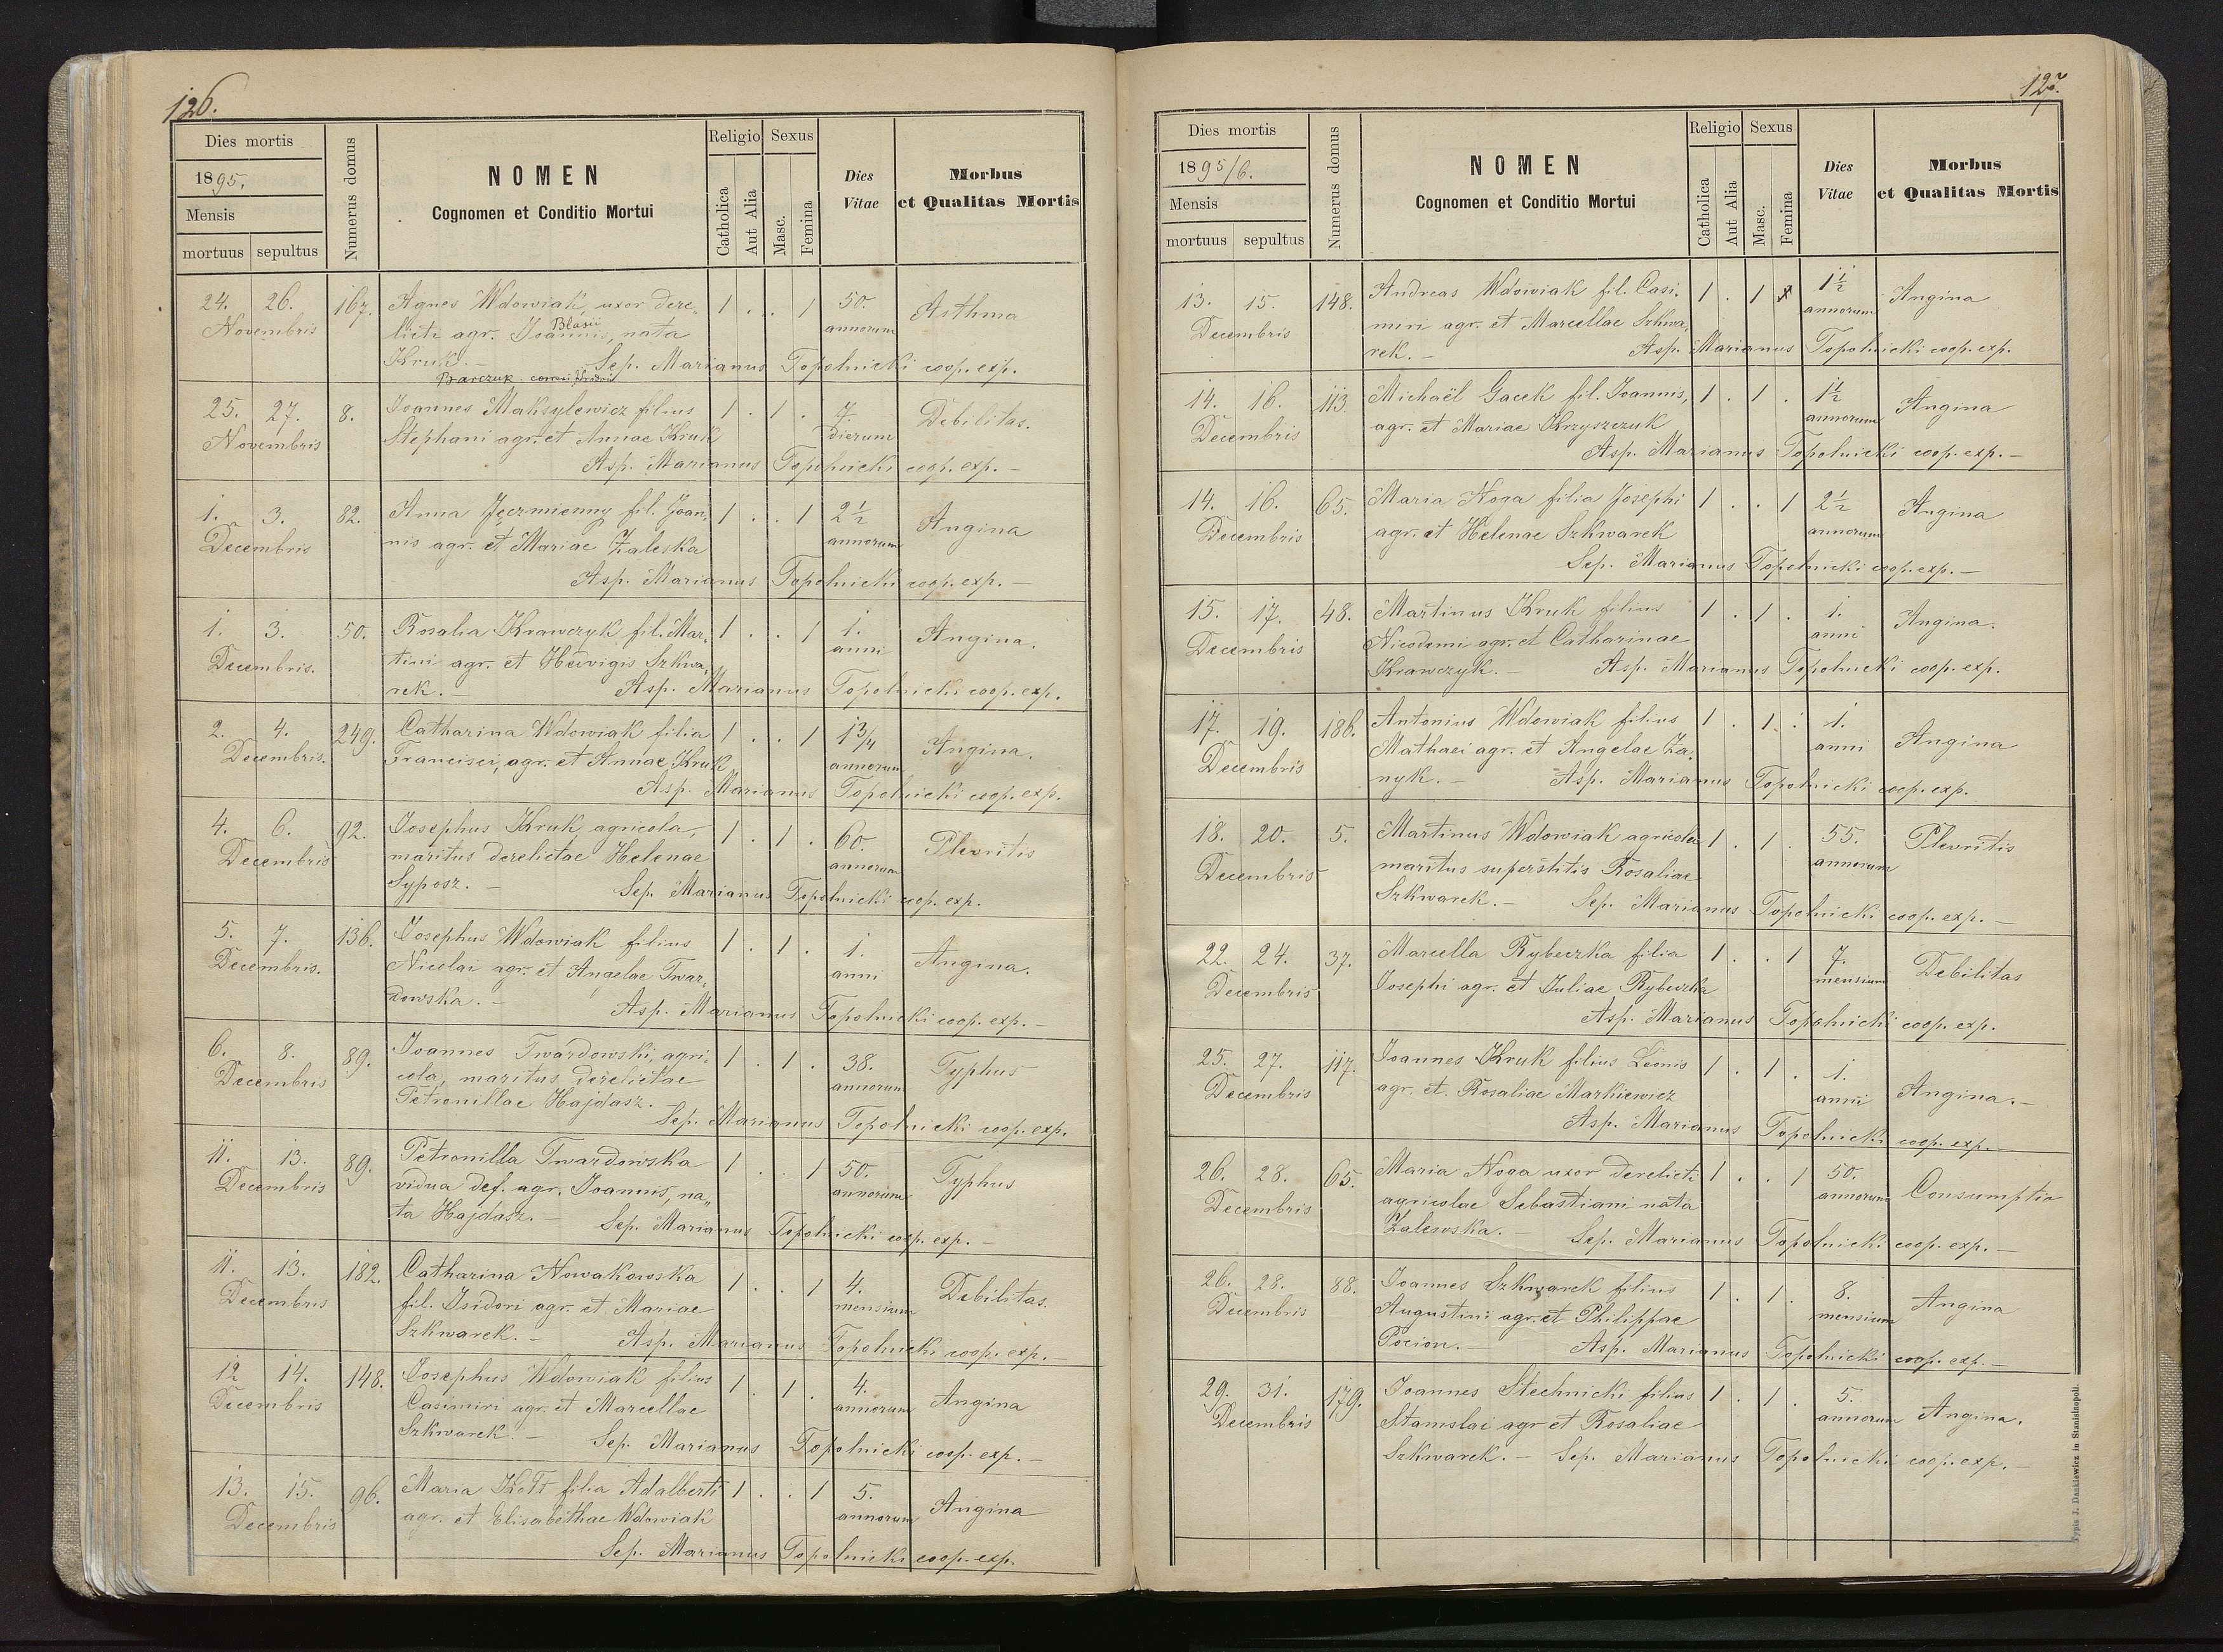 126.
Dies mortis
1895.
Mensis
mortuus sepultus
Numerus domus
NOMEN
Cognomen et Conditio Mortui
Religio
Catholica
Aut Alia
Sexus
Masc.
Femina
Dies
Vitae
Morbus
et Qualitas Mortis
24. 26. 167. Agnes Wdowiak, uxor dere- 1 . . 1 50. Asthma
Novembris licti agr. Joannis, nata annorum
Blasii
Kruk. — Sep. Marianus Topolnicki coop. exp.
Barczuk
25. 27. 8. Joannes Maksylewicz filius 1 . 1 . 7. Debilitas.
Novembris Stephani agr. et Annae Kruk dierum
Asp. Marianus Topolnicki coop. exp. —
1. 3. 82. Anna Jęczmienny fil. Joan- 1 . . 1 2½ Angina
Decembris nis agr. et Mariae Zaleska annorum
Asp. Marianus Topolnicki coop. exp. —
1. 3. 50. Rosalia Krawczyk fil. Mar- 1 . . 1 1. Angina.
Decembris. tini agr. et Hedvigis Szkwa- anni
rek. — Asp. Marianus Topolnicki coop. exp.
2. 4. 249. Catharina Wdowiak filia 1 . . 1 1 3/4 Angina.
Decembris. Francisci, agr. et Annae Kruk annorum
Asp. Marianus Topolnicki coop. exp.
4. 6. 92. Josephus Kruk, agricola, 1 . 1 . 60. Plevritis
Decembris maritus derelictae Helenae annorum
Syposz. — Sep. Marianus Topolnicki coop. exp.
5. 7. 136. Josephus Wdowiak filius 1 . 1 . 1. Angina.
Decembris. Nicolai agr. et Angelae Twar- anni
dowska. — Asp. Marianus Topolnicki coop. exp. —
6. 8. 89. Joannes Twardowski, agri- 1 . 1 . 38. Typhus
Decembris cola, maritus derelictae annorum
Petronillae Hajdasz. Sep. Marianus Topolnicki coop. exp.
11. 13. 89. Petronilla Twardowska 1 . . 1 50. Typhus
Decembris vidua def. agr. Joannis, na- annorum
ta Hajdasz. — Sep. Marianus Topolnicki coop. exp. —
11. 13. 182. Catharina Nowakowska 1 . . 1 4. Debilitas.
Decembris fil. Isidori agr. et Mariae mensium
Szkwarek. — Asp. Marianus Topolnicki coop. exp. —
12 14. 148. Josephus Wdowiak filius 1 . 1 . 4. Angina
Decembris Casimiri agr. et Marcellae annorum
Szkwarek. — Sep. Marianus Topolnicki coop. exp. —
13. 15. 96. Maria filia Adalberti 1 . . 1 5. Angina
Decembris agr. et Elisabethae Wdowiak annorum
Sep. Marianus Topolnicki coop. exp.
127.
Dies mortis
1895/6.
Mensis
mortuus sepultus
Numerus domus
NOMEN
Cognomen et Conditio Mortui
Religio
Catholica
Aut Alia
Sexus
Masc.
Femina
Dies
Vitae
Morbus
et Qualitas Mortis
13. 15. 148. Andreas Wdowiak fil. Casi- 1 . 1 1½ Angina
Decembris miri agr. et Marcellae Szkwa- annorum
rek. — Asp. Marianus Topolnicki coop. exp.
14. 16. 113. Michaël Gacek fil. Joannis, 1 . 1 . 1½ Angina
Decembris agr. et Mariae Krzyszczuk annorum
Asp. Marianus Topolnicki coop. exp. —
14. 16. 65. Maria Noga filia Josephi 1 . . 1 2½ Angina
Decembris agr. et Helenae Szkwarek annorum
Sep. Marianus Topolnicki coop. exp. —
15. 17. 48. Martinus Kruk filius 1 . 1 . 1. Angina.
Decembris Nicodemi agr. et Catharinae anni
Krawczyk. — Asp. Marianus Topolnicki coop. exp.
17. 19. 186. Antonius Wdowiak filius 1 . 1 . 1. Angina
Decembris Mathaei agr. et Angelae Za- anni
nyk. — Asp. Marianus Topolnicki coop. exp.
18. 20. 5. Martinus Wdowiak agricola 1 . 1 . 55. Plevritis
Decembris maritus superstitis Rosaliae annorum
Szkwarek. — Sep. Marianus Topolnicki coop. exp. —
22. 24. 37. Marcella Rybeczka filia 1 . . 1 7. Debilitas
Decembris Josephi agr. et Juliae Rybeczka mensium
Asp. Marianus Topolnicki coop. exp.
25. 27. 117. Joannes Kruk filius Leonis 1 . 1 . 1. Angina. —
Decembris agr. et. Rosaliae Markiewicz anni
Asp. Marianus Topolnicki coop. exp. —
26. 28. 65. Maria Noga uxor derelicti 1 . . 1 50. Consumptio
Decembris agricolae Sebastiani nata annorum
Zalewska. — Sep. Marianus Topolnicki coop. exp. —
26. 28. 88. Joannes Szkwarek filius 1 . 1 . 8. Angina
Decembris Augustini agr. et Philippae mensium
Pocion. — Asp. Marianus Topolnicki coop. exp. —
29. 31. 179. Joannes Stechnicki filius 1 . 1 . 5. Angina.
Decembris Stanislai agr et Rosaliae annorum
Szkwarek. — Sep. Marianus Topolnicki coop. exp. —
Typis J. Dankiewicz in Stanislaopoli.